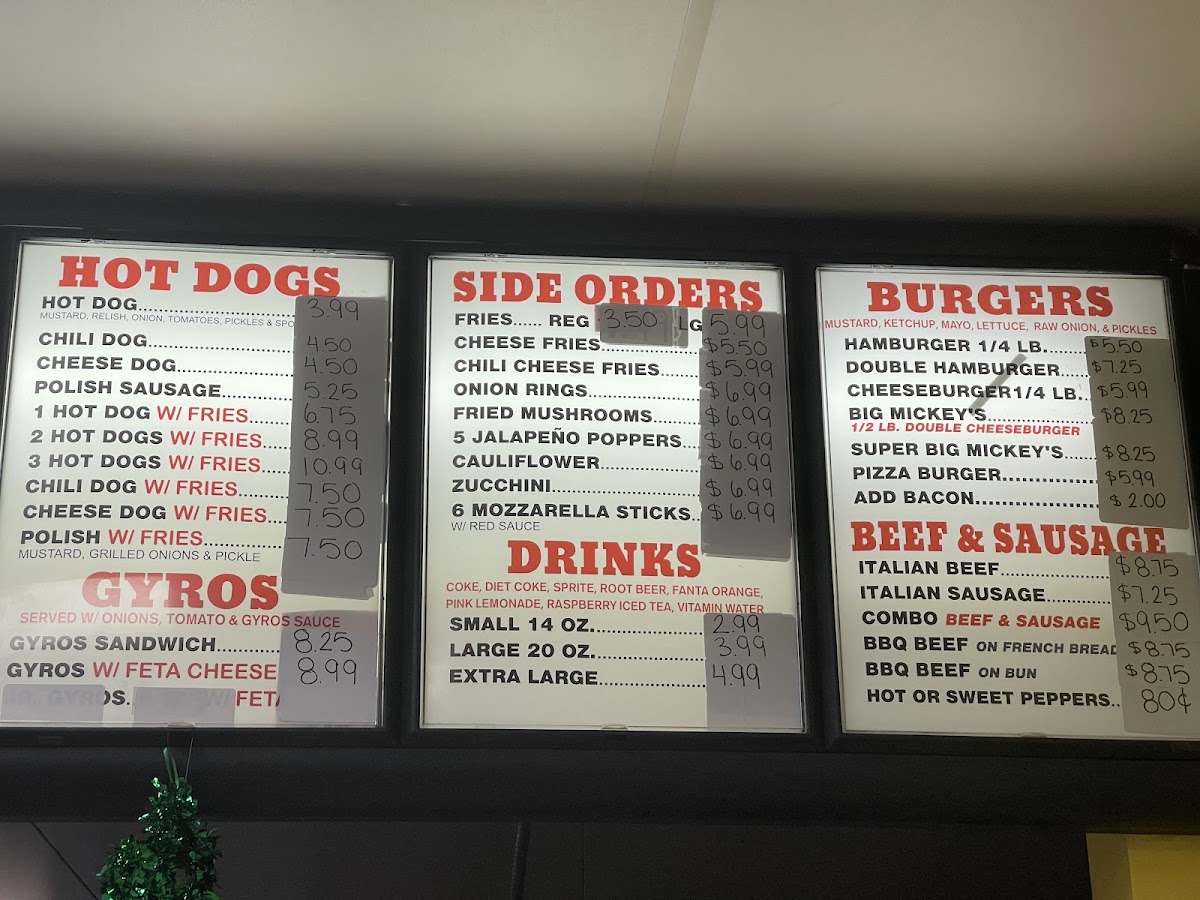 HOT DOGS
HOT DOG.................... 3.99
MUSTARD, RELISH, ONION, TOMATOES, PICKLES & SPO
CHILI DOG.................... 4.50
CHEESE DOG.................... 4.50
POLISH SAUSAGE.......... 5.25
1 HOT DOG W/ FRIES...... 6.75
2 HOT DOGS W/ FRIES.... 8.99
3 HOT DOGS W/ FRIES.... 10.99
CHILI DOG W/ FRIES........ 7.50
CHEESE DOG W/ FRIES... 7.50
POLISH W/ FRIES............. 7.50
MUSTARD, GRILLED ONIONS & PICKLE
GYROS
SERVED W/ ONIONS, TOMATO & GYROS SAUCE
GYROS SANDWICH.......... 8.25
GYROS W/ FETA CHEESE 8.99
GYROS. W/ FETA
SIDE ORDERS
FRIES...... REG 3.50 LG 5.99
CHEESE FRIES.................. $5.50
CHILI CHEESE FRIES....... $5.99
ONION RINGS.................... $6.99
FRIED MUSHROOMS........ $6.99
5 JALAPEÑO POPPERS... $6.99
CAULIFLOWER.................. $6.99
ZUCCHINI........................... $6.99
6 MOZZARELLA STICKS.. $6.99
W/ RED SAUCE
DRINKS
COKE, DIET COKE, SPRITE, ROOT BEER, FANTA ORANGE,
PINK LEMONADE, RASPBERRY ICED TEA, VITAMIN WATER
SMALL 14 OZ..................... 2.99
LARGE 20 OZ..................... 3.99
EXTRA LARGE.................... 4.99
BURGERS
MUSTARD, KETCHUP, MAYO, LETTUCE, RAW ONION, & PICKLES
HAMBURGER 1/4 LB........ $5.50
DOUBLE HAMBURGER.... $7.25
CHEESEBURGER1/4 LB.. $5.99
BIG MICKEY'S.................. $8.25
1/2 LB. DOUBLE CHEESEBURGER
SUPER BIG MICKEY'S..... $8.25
PIZZA BURGER................ $5.99
ADD BACON...................... $2.00
BEEF & SAUSAGE
ITALIAN BEEF................... $8.75
ITALIAN SAUSAGE........... $7.25
COMBO BEEF & SAUSAGE $9.50
BBQ BEEF ON FRENCH BREAD $8.75
BBQ BEEF ON BUN $8.75
HOT OR SWEET PEPPERS.. 80¢